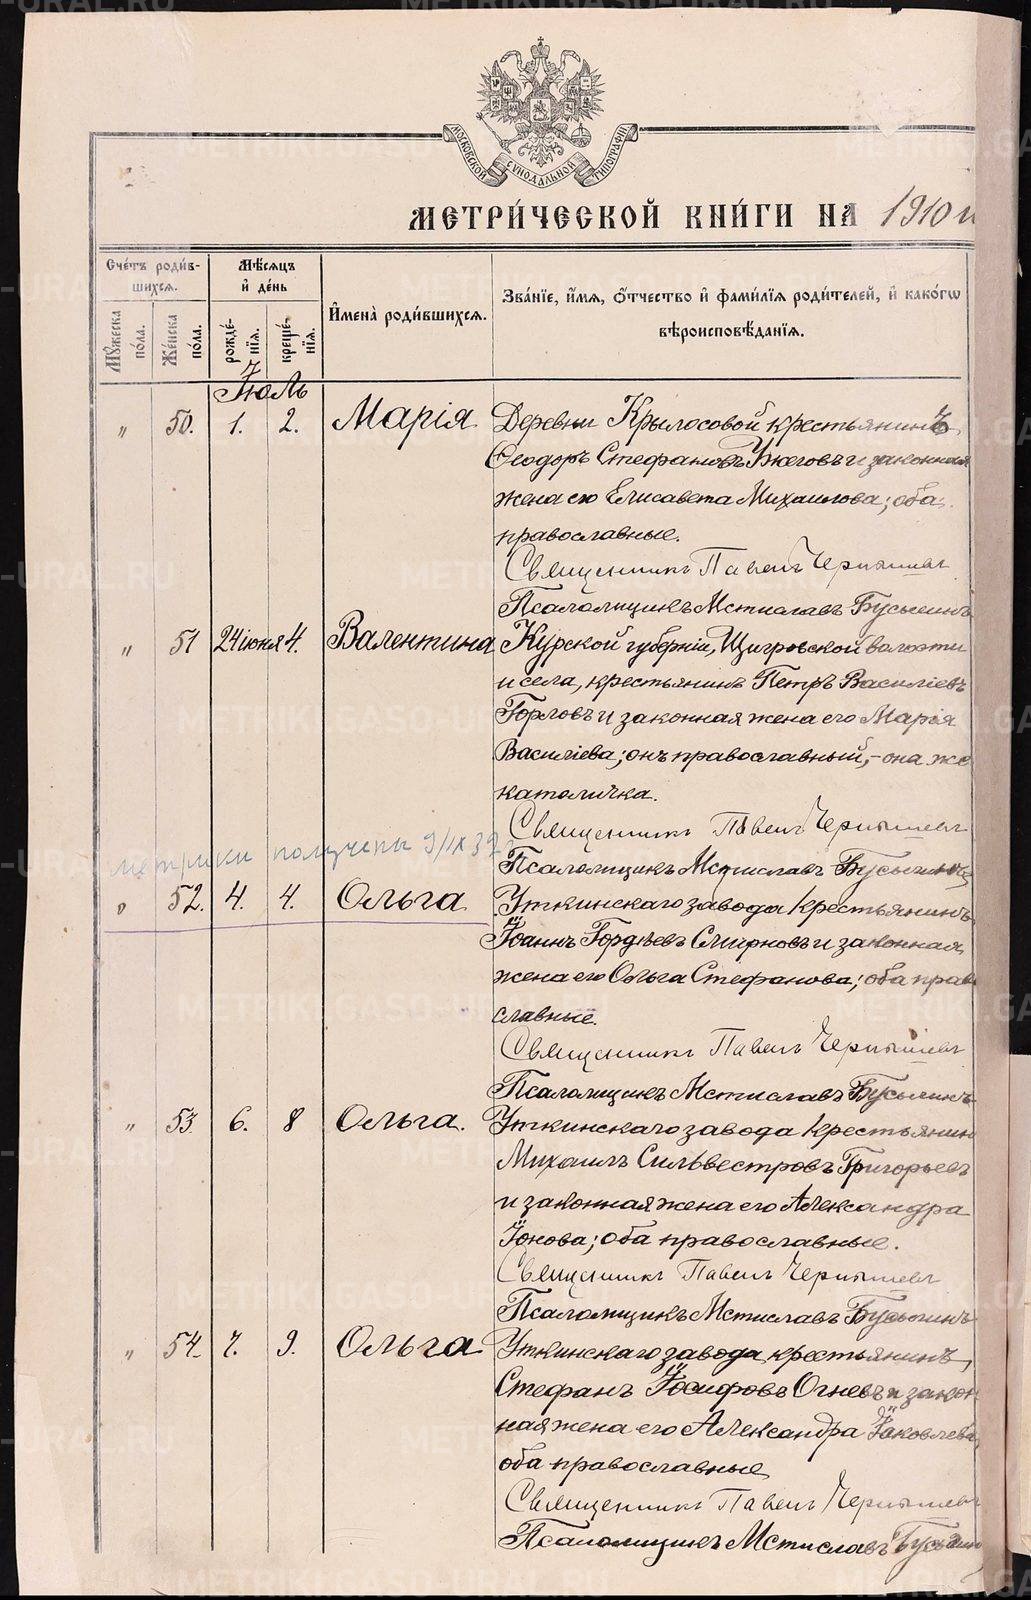 МОСКОВСКОЙ СѴНОДАЛЬНОЙ ТИПОГРАФІИ
МЕТРИ́ЧЕСКОЙ КНИ́ГИ НА 1910
Сче́тъ роди́в-
шихсѧ.
Мѣ́сѧцъ
и҆ де́нь
И҆мена̀ роди́вшихсѧ.
Зва́нїе, и҆́мѧ, ѻ҆́тчество и҆ фами́лїѧ роди́телей, и҆ како́гѡ
вѣроисповѣ́данїѧ.
Мꙋ́жеска
по́ла.
Же́нска
по́ла.
рожде́-
нїѧ.
креще́-
нїѧ.
Іюль
„ 50. 1. 2. Марія Деревни Крылосовой крестьянинъ
Ѳеодоръ Стефановъ Ужеговъ и законная
жена его Елисавета Михаилова; оба
православные.
Священникъ Павелъ Чернышевъ
Псаломщикъ Мстиславъ Бусыгинъ
„ 51 24 іюня 4. Валентина Курской губерніи, Щигровской волости
и села, крестьянинъ Петръ Василіевъ
Горловъ и законная жена его Марія
Василіева; онъ православный,- она же
католичка.
Священникъ Павелъ Чернышевъ
метрики получены 9/IX 37
Псаломщикъ Мстиславъ Бусыгинъ
„ 52. 4. 4. Ольга Уткинскаго завода крестьянинъ
Іоаннъ Гордѣевъ Смирновъ и законная
жена его Ольга Стефанова; оба право
славные.
Священникъ Павелъ Чернышевъ
Псаломщикъ Мстиславъ Бусыгинъ
„ 53. 6. 8 Ольга. Уткинскаго завода крестьянин
Михаилъ Сильвестровъ Григорьевъ
и законная жена его Александра
Іонова; оба православные.
Священникъ Павелъ Чернышевъ
Псаломщикъ Мстиславъ Бусыгинъ
„ 54. 7. 9. Ольга Уткинскаго завода, крестьянинъ,
Стефанъ Іосифовъ Огневъ и закон
ная жена его Александра Іаковлева,
оба православные
Священникъ Павелъ Чернышевъ
Псаломщикъ Мстиславъ Бусыгин
METRIKI.GASO-URAL.RU